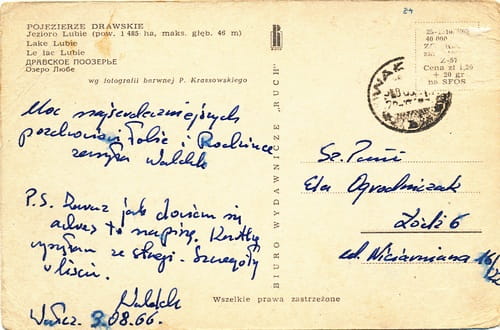 24
POJEZIERZE DRAWSKIE
Jezioro Lubie (pow. 1 485 ha, maks. głęb. 46 m)
Lake Lubie
Le lac Lubie
ДРАВСКОЕ ПООЗЕРЬЕ
Озеро Любе
wg fotografii barwnej P. Krassowskiego
Moc najserdeczniejszych
pozdrowień Tobie i Rodzince
zasyła
P.S. Zaraz jak dowiem się
adres to napiszę. Kartkę
wysyłam ze stacji. Szczegóły
w liście.
Wałcz. 3.08.66.
BIURO WYDAWNICZE „RUCH"
Wszelkie prawa zastrzeżone
40 000
Z-57
Cena zł 1,20
+ 20 gr
na SFOS
WAŁ
Sz. Pani
Ela Ogrodniczak
Łódź 6
ul. Wiciarniana 16/